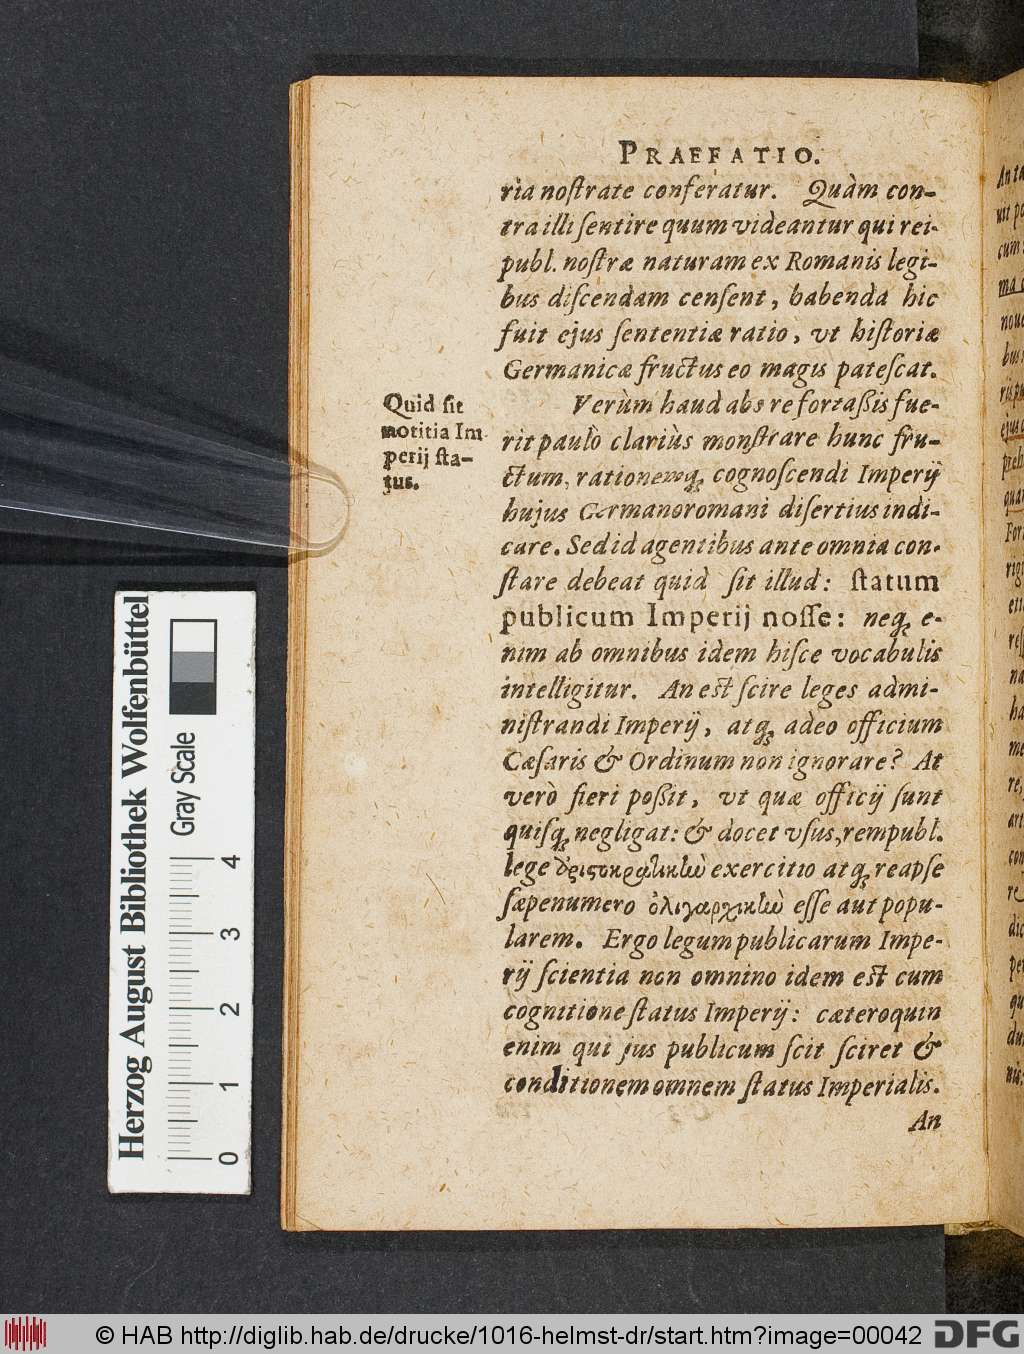 PRAEFATIO.
ria noſtrate conferatur. Quàm con-
tra illi ſentire quum videantur qui rei-
publ. noſtræ naturam ex Romanis legi-
bus diſcendam cenſent, habenda hic
fuit ejus ſententiæ ratio, vt hiſtoriæ
Germanicæ fructus eo magis pateſcat.
Quid ſit
notitia Im
perij ſta-
tus.
Verùm haud abs re fortaſſis fue-
rit paulò clariùs monſtrare hunc fru-
ctum, rationemq́ꝫ cognoſcendi Imperij
hujus Germanoromani diſertius indi-
care. Sed id agentibus ante omnia con-
ſtare debeat quid ſit illud: ſtatum
publicum Imperij noſſe: neqꝫ e-
nim ab omnibus idem hiſce vocabulis
intelligitur. An eſt ſcire leges admi-
niſtrandi Imperij, atqꝫ adeo officium
Cæſaris & Ordinum non ignorare? At
verò fieri poſſit, vt quæ officij ſunt
quiſqꝫ negligat: & docet vſus, rempubl.
lege ἀριστοκρατικὼ exercitio atqꝫ reapſe
ſæpenumero ὀλιγαρχικὼ eſſe aut popu-
larem. Ergo legum publicarum Impe-
rij ſcientia non omnino idem eſt cum
cognitione ſtatus Imperij: cæteroquin
enim qui jus publicum ſcit ſciret &
conditionem omnem ſtatus Imperialis.
An
Herzog August Bibliothek Wolfenbüttel
Gray Scale
0 1 2 3 4
© HAB http://diglib.hab.de/drucke/1016-helmst-dr/start.htm?image=00042
DFG